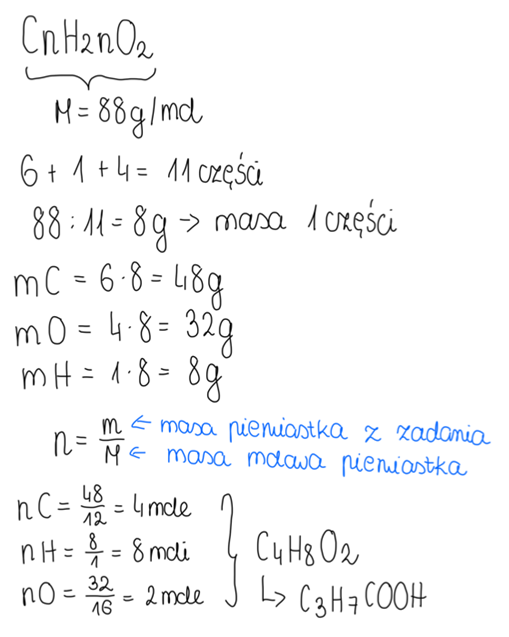 CnH2nO2
M = 88g/mol
6 + 1 + 4 = 11 części
88 : 11 = 8g → masa 1 części
mC = 6 · 8 = 48g
mO = 4 · 8 = 32g
mH = 1 · 8 = 8g
n = m/M
← masa pierwiastka z zadania
← masa molowa pierwiastka
nC = 48/12 = 4 mole
nH = 8/1 = 8 moli
nO = 32/16 = 2 mole
C4H8O2
↳ C3H7COOH